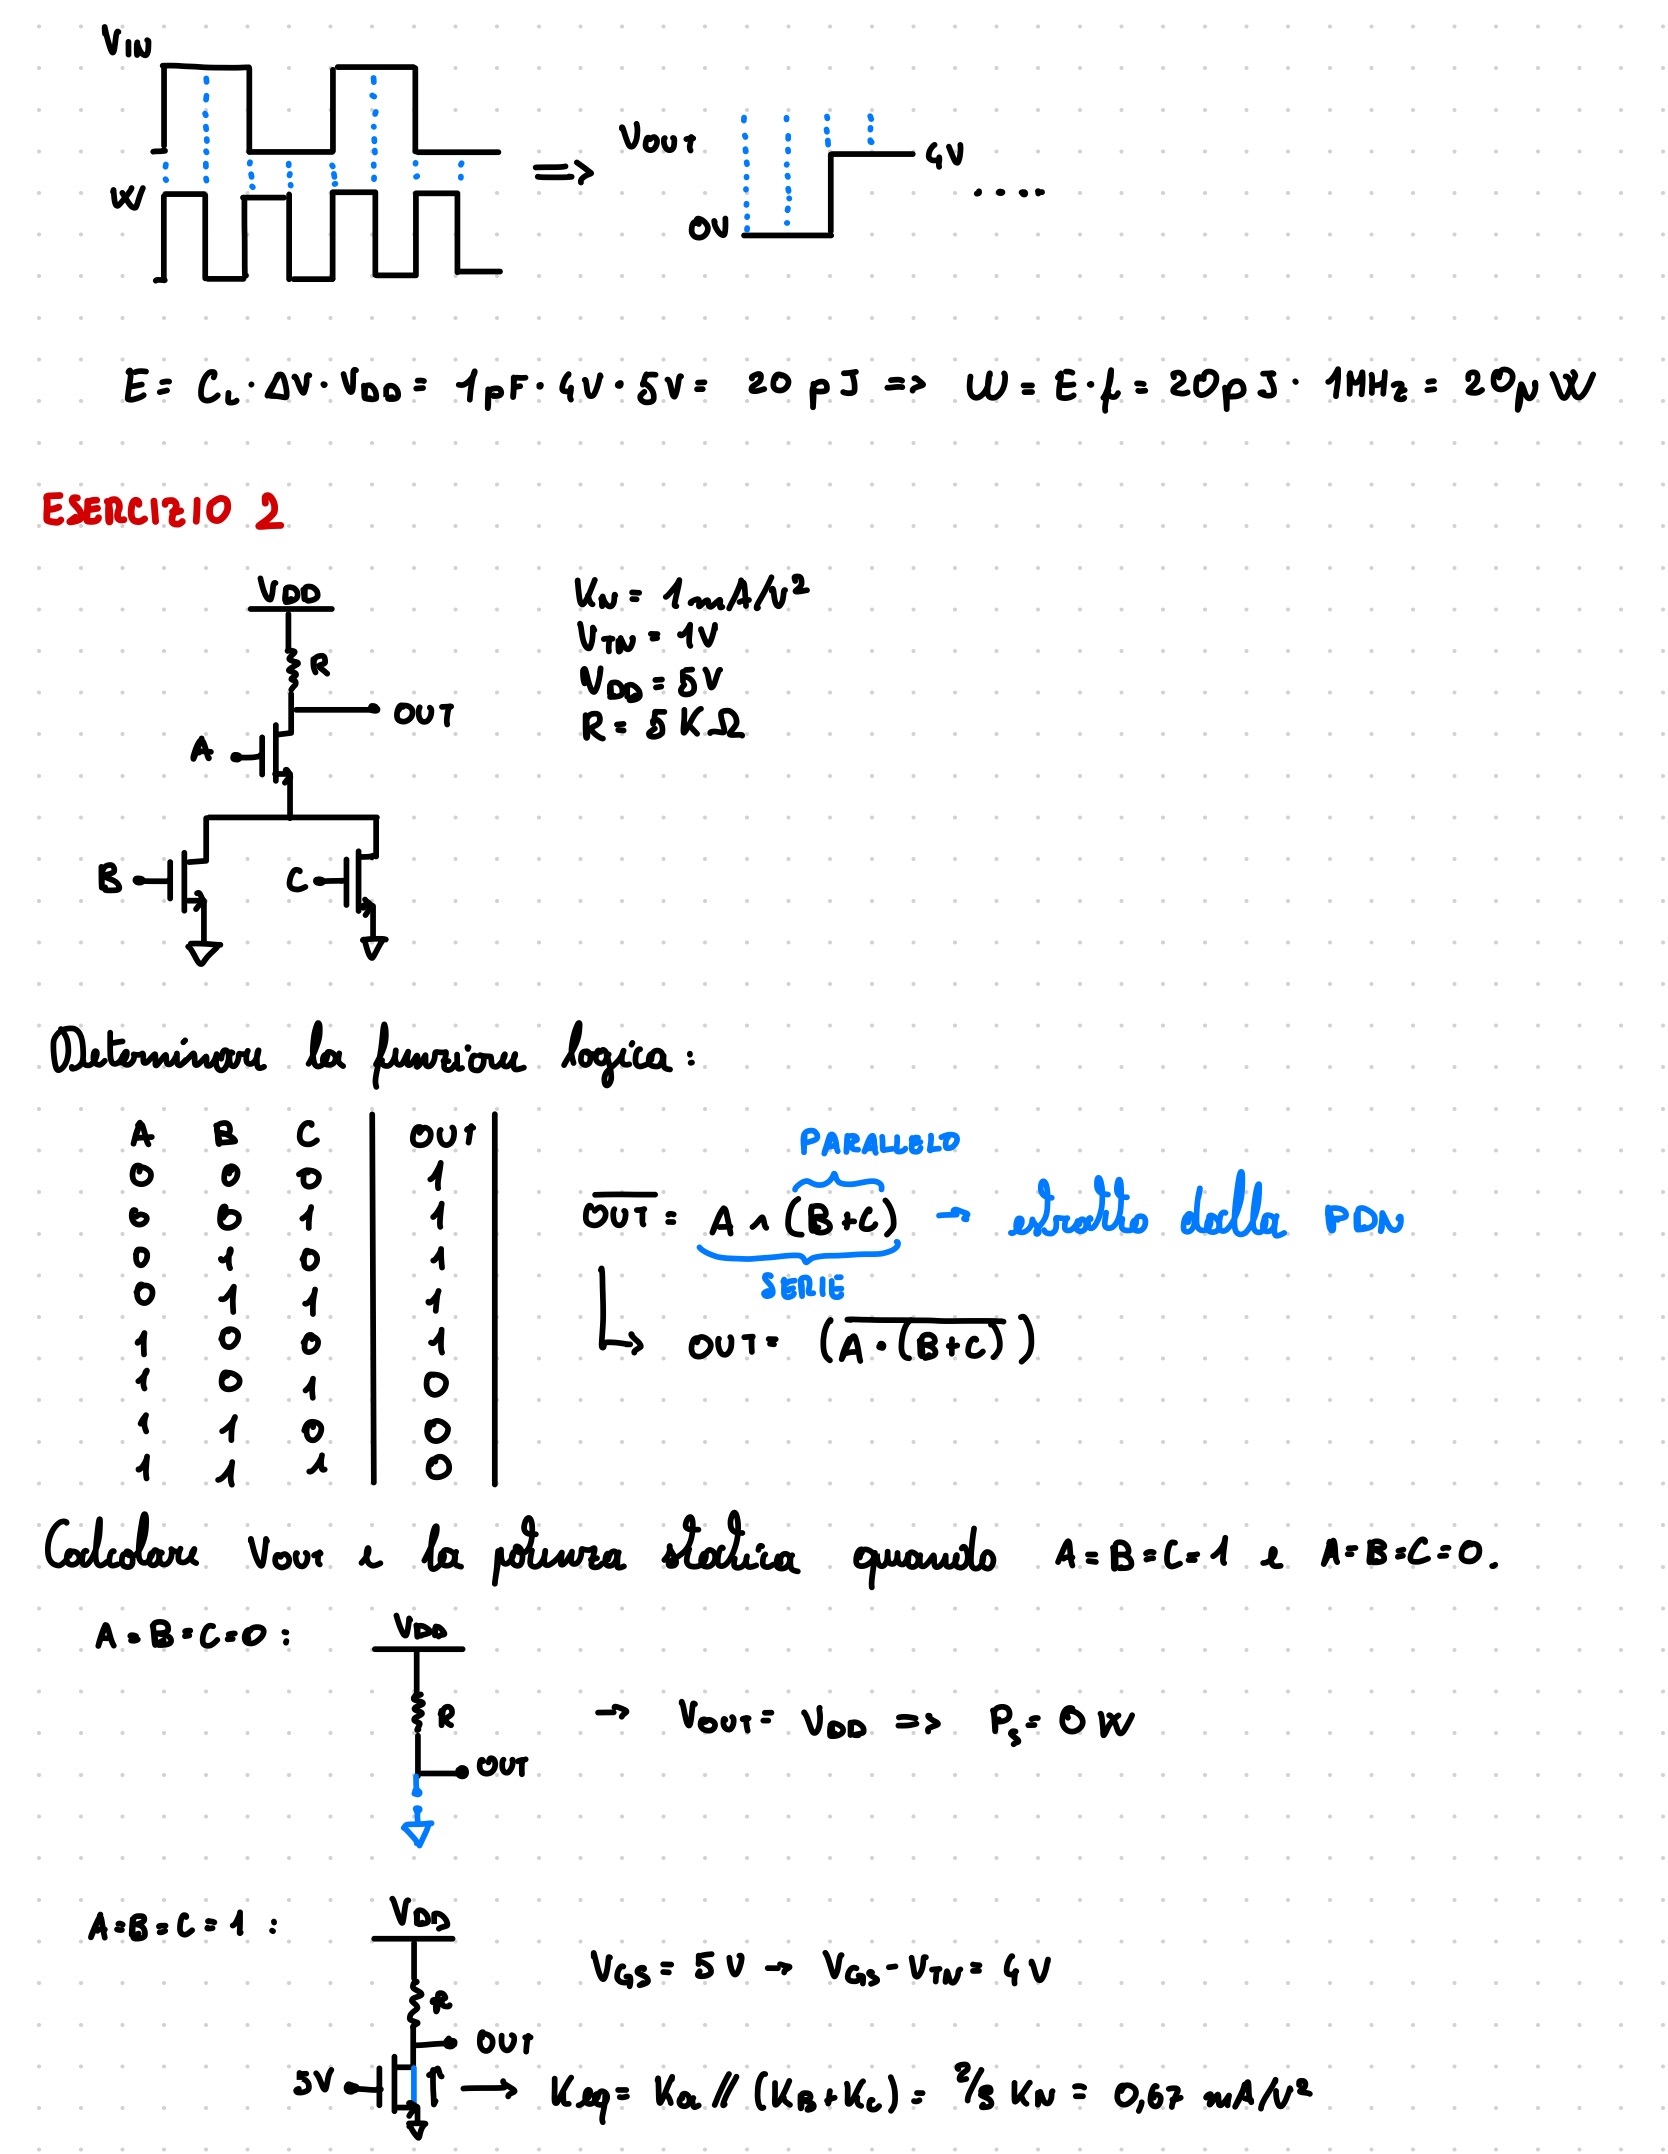 VIN
W
⇒ VOUT
4V
0V
....
E = CL · ΔV · VDD = 1pF · 4V · 5V = 20 pJ => W = E · f = 20pJ · 1MHz = 20μW
ESERCIZIO 2
VDD
R
OUT
A
B
C
KN = 1mA/V²
VTN = 1V
VDD = 5V
R = 5KΩ
Determinare la funzione logica:
A B C OUT
0 0 0 1
0 0 1 1
0 1 0 1
0 1 1 1
1 0 0 1
1 0 1 0
1 1 0 0
1 1 1 0
PARALLELO
O̅U̅T̅ = A ∧ (B+C) → estratto dalla PDN
SERIE
OUT = (A̅ ̅·̅ ̅(̅B̅+̅C̅)̅)
Calcolare VOUT e la potenza statica quando A=B=C=1 e A=B=C=0.
A=B=C=0:
VDD
R
OUT
→ VOUT = VDD => Ps = 0 W
A=B=C=1:
VDD
R
OUT
5V
VGS = 5V → VGS - VTN = 4V
→ Keq = Ka // (KB+KC) = 2/3 KN = 0,67 mA/V²